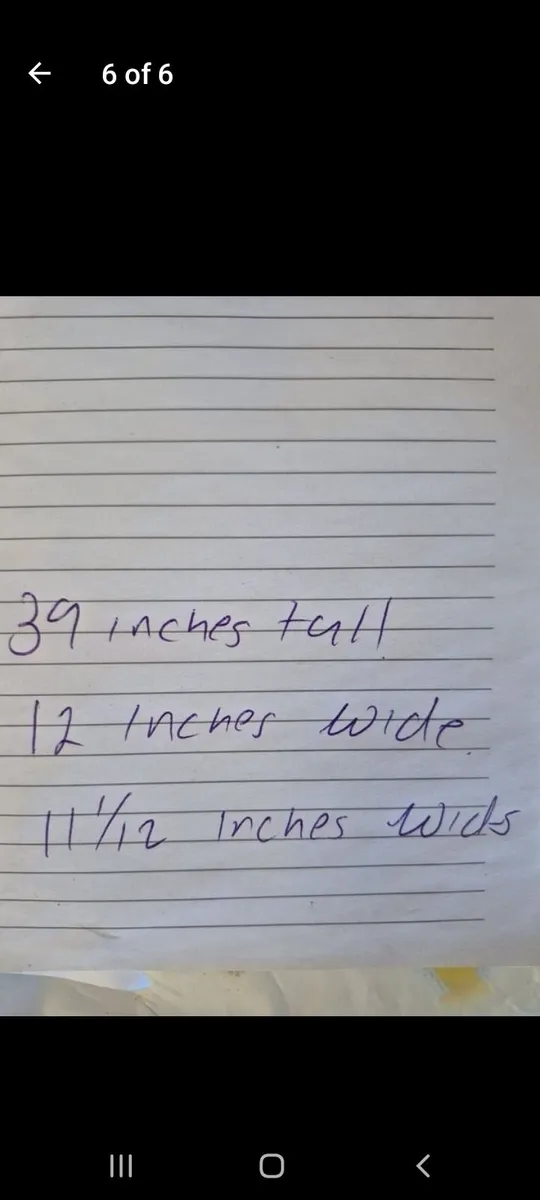 6 of 6
39 inches tall
12 Inches wide
11 1/12 Inches wids